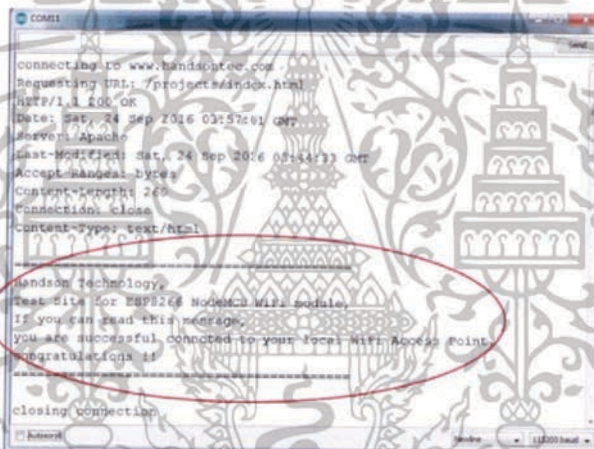 COM11
Send
connecting to www.handsontec.com
Requesting URL: /projects/index.html
HTTP/1.1 200 OK
Date: Sat, 24 Sep 2016 03:57:01 GMT
Server: Apache
Last-Modified: Sat, 24 Sep 2016 03:44:33 GMT
Accept-Ranges: bytes
Content-Length: 260
Connection: close
Content-Type: text/html
Handson Technology,
Test Site for ESP8266 NodeMCU Wifi module,
If you can read this message,
you are successful conncted to your local Wifi Access Point,
Congratulations !!
closing connection
Autoscroll
Newline
115200 baud